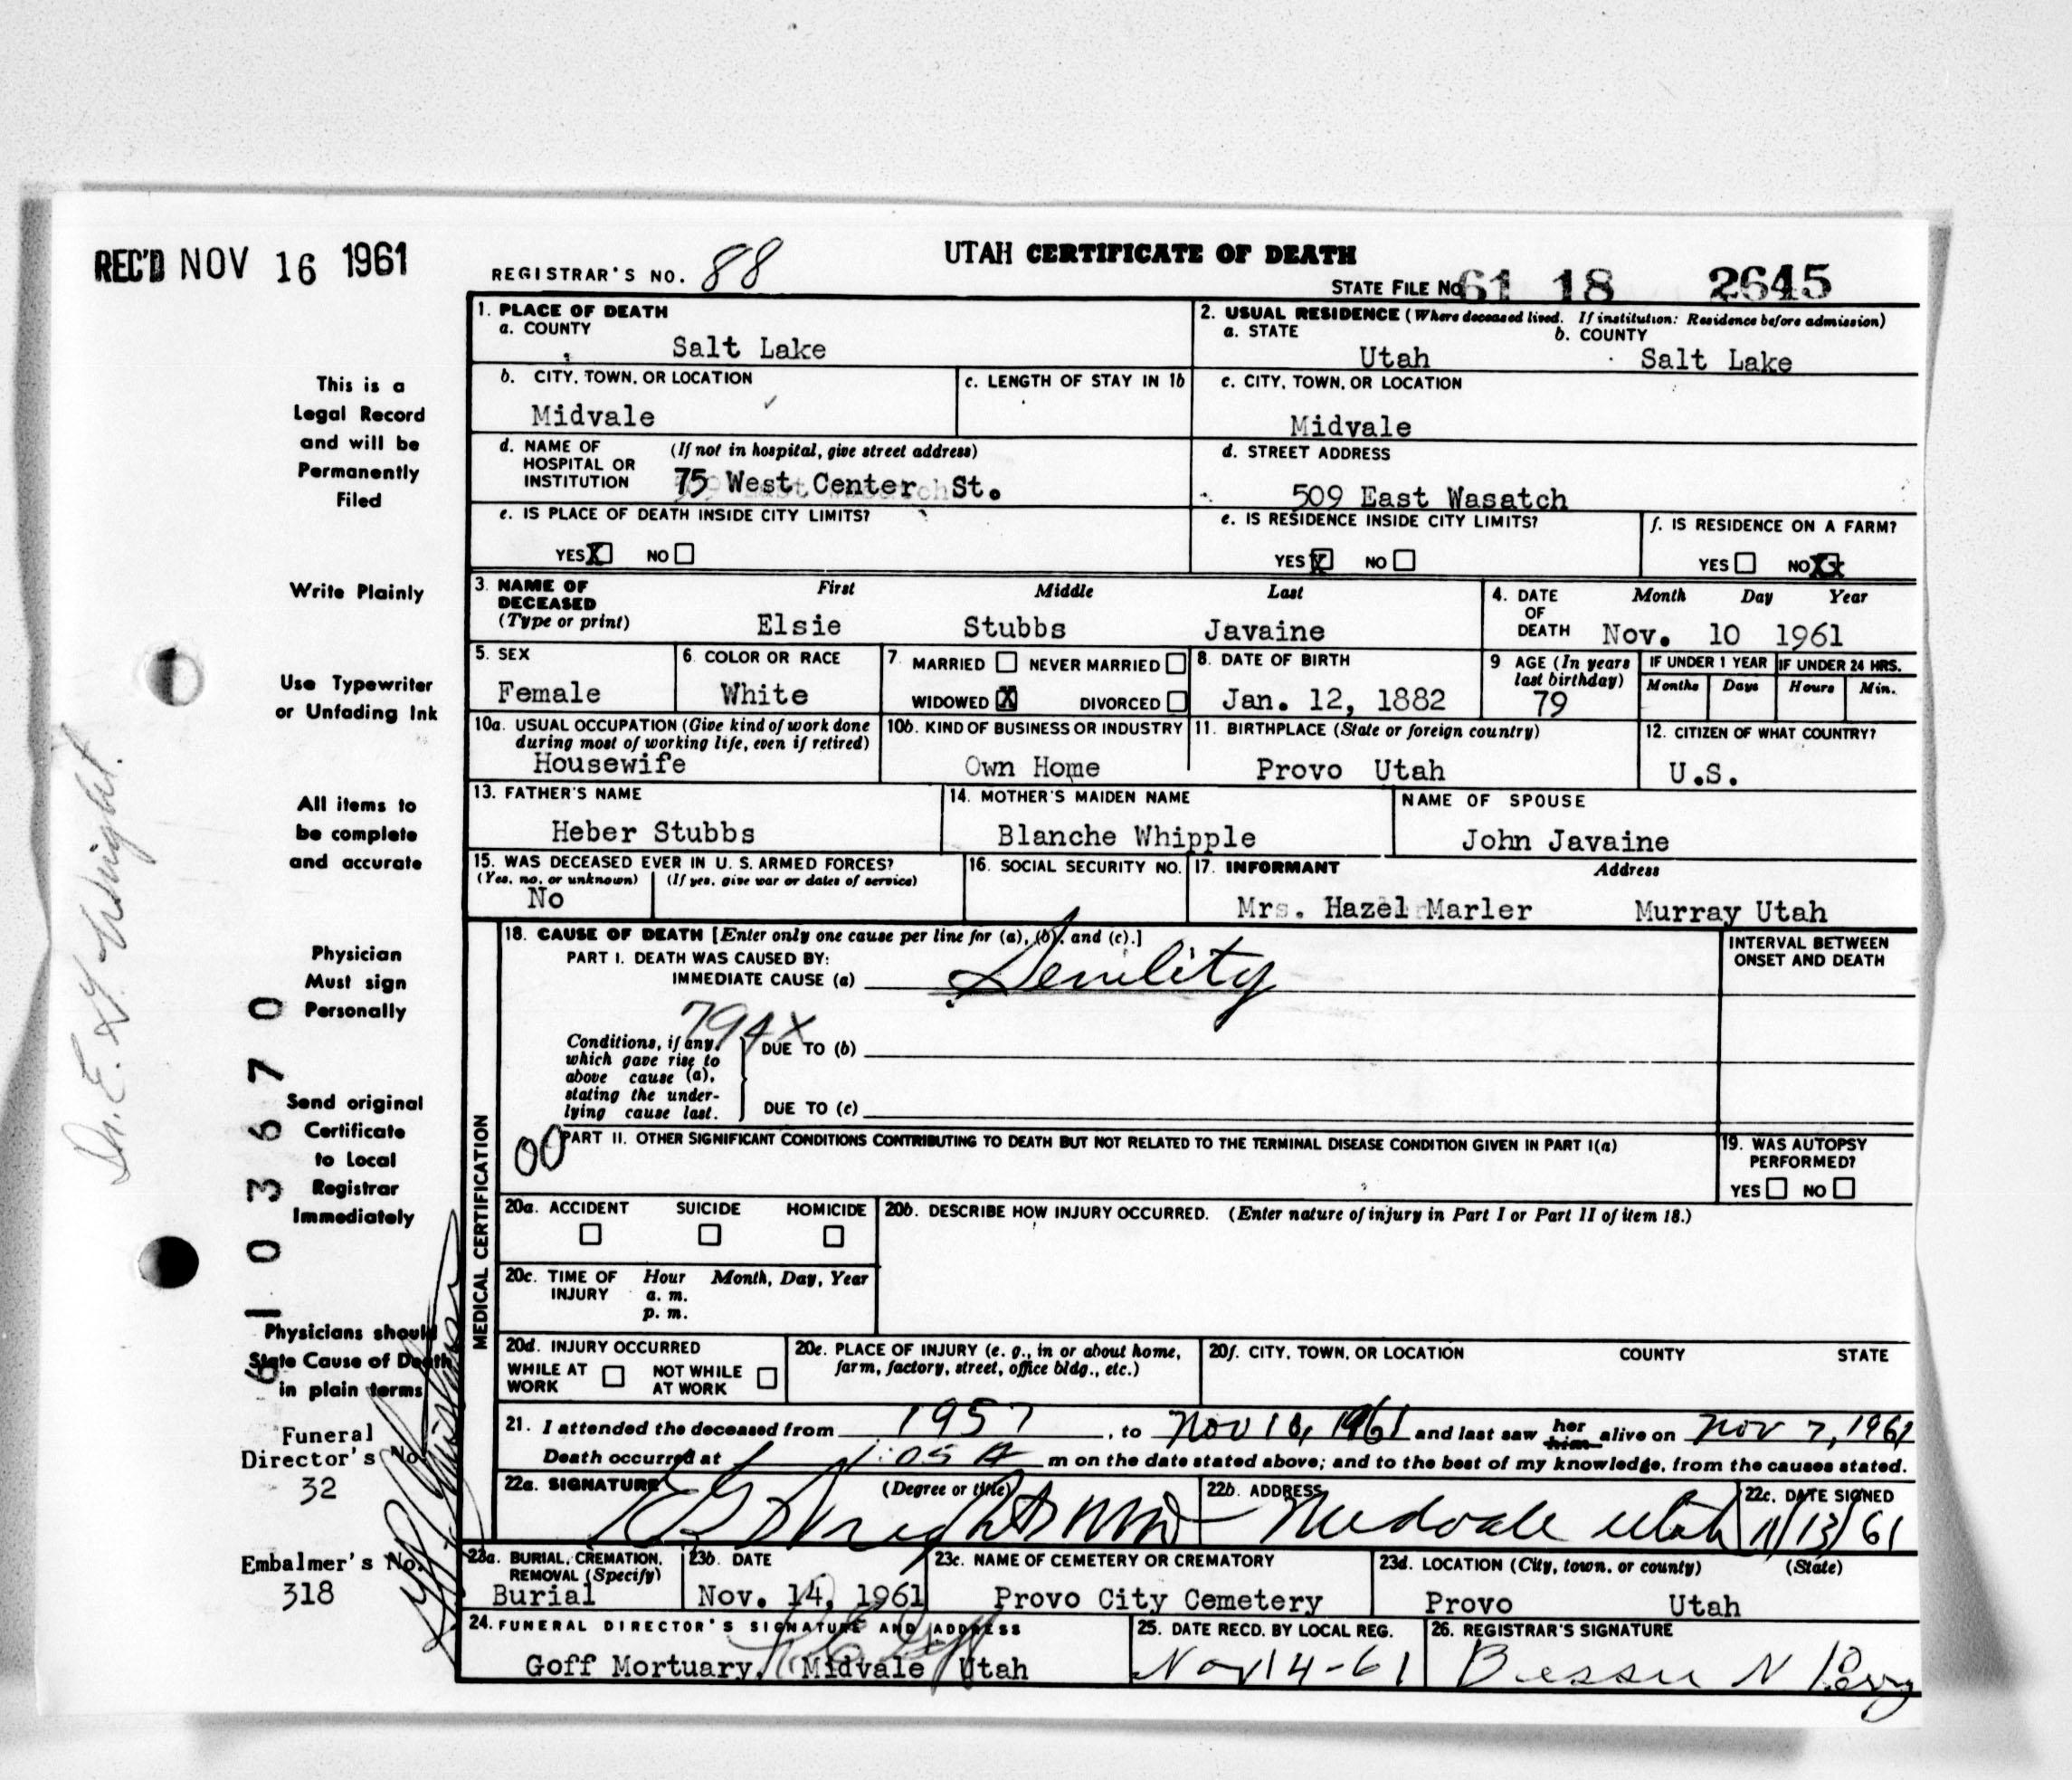 REC'D NOV 16 1961
UTAH CERTIFICATE OF DEATH
REGISTRAR'S NO. 88
STATE FILE NO. 61 18 2645
1. PLACE OF DEATH
a. COUNTY
Salt Lake
2. USUAL RESIDENCE (Where deceased lived. If institution: Residence before admission)
a. STATE
Utah
b. COUNTY
Salt Lake
b. CITY, TOWN, OR LOCATION
Midvale
c. LENGTH OF STAY IN 1b
c. CITY, TOWN, OR LOCATION
Midvale
d. NAME OF HOSPITAL OR INSTITUTION (If not in hospital, give street address)
75 West Center St.
d. STREET ADDRESS
509 East Wasatch
e. IS PLACE OF DEATH INSIDE CITY LIMITS?
YES X NO
e. IS RESIDENCE INSIDE CITY LIMITS?
YES X NO
f. IS RESIDENCE ON A FARM?
YES NO X
3. NAME OF DECEASED (Type or print)
First Middle Last
Elsie Stubbs Javaine
4. DATE OF DEATH
Month Day Year
Nov. 10 1961
5. SEX
Female
6. COLOR OR RACE
White
7. MARRIED NEVER MARRIED
WIDOWED X DIVORCED
8. DATE OF BIRTH
Jan. 12, 1882
9 AGE (In years last birthday)
79
IF UNDER 1 YEAR
Months Days
IF UNDER 24 HRS.
Hours Min.
10a. USUAL OCCUPATION (Give kind of work done during most of working life, even if retired)
Housewife
10b. KIND OF BUSINESS OR INDUSTRY
Own Home
11. BIRTHPLACE (State or foreign country)
Provo Utah
12. CITIZEN OF WHAT COUNTRY?
U.S.
13. FATHER'S NAME
Heber Stubbs
14. MOTHER'S MAIDEN NAME
Blanche Whipple
NAME OF SPOUSE
John Javaine
15. WAS DECEASED EVER IN U. S. ARMED FORCES?
(Yes, no, or unknown) (If yes, give war or dates of service)
No
16. SOCIAL SECURITY NO.
17. INFORMANT Address
Mrs. Hazel Marler Murray Utah
MEDICAL CERTIFICATION
18. CAUSE OF DEATH [Enter only one cause per line for (a), (b), and (c).]
PART I. DEATH WAS CAUSED BY:
IMMEDIATE CAUSE (a) Senility
INTERVAL BETWEEN ONSET AND DEATH
794X
Conditions, if any, which gave rise to above cause (a), stating the underlying cause last.
DUE TO (b)
DUE TO (c)
00
PART II. OTHER SIGNIFICANT CONDITIONS CONTRIBUTING TO DEATH BUT NOT RELATED TO THE TERMINAL DISEASE CONDITION GIVEN IN PART I(a)
19. WAS AUTOPSY PERFORMED?
YES NO
20a. ACCIDENT SUICIDE HOMICIDE
20b. DESCRIBE HOW INJURY OCCURRED. (Enter nature of injury in Part I or Part II of item 18.)
20c. TIME OF INJURY
Hour Month, Day, Year
a. m.
p. m.
20d. INJURY OCCURRED
WHILE AT WORK NOT WHILE AT WORK
20e. PLACE OF INJURY (e. g., in or about home, farm, factory, street, office bldg., etc.)
20f. CITY, TOWN, OR LOCATION COUNTY STATE
21. I attended the deceased from 1957, to Nov 10, 1961 and last saw her him alive on Nov 7, 1961
Death occurred at 1:05 A m on the date stated above; and to the best of my knowledge, from the causes stated.
22a. SIGNATURE (Degree or title)
E G Wright MD
22b. ADDRESS
Midvale Utah
22c. DATE SIGNED
11/13/61
23a. BURIAL, CREMATION, REMOVAL (Specify)
Burial
23b. DATE
Nov. 14, 1961
23c. NAME OF CEMETERY OR CREMATORY
Provo City Cemetery
23d. LOCATION (City, town, or county) (State)
Provo Utah
24. FUNERAL DIRECTOR'S SIGNATURE AND ADDRESS
Goff Mortuary, Midvale Utah
25. DATE RECD. BY LOCAL REG.
Nov 14-61
26. REGISTRAR'S SIGNATURE
Bessie N Perry
This is a
Legal Record
and will be
Permanently
Filed
Write Plainly
Use Typewriter
or Unfading Ink
All items to
be complete
and accurate
Physician
Must sign
Personally
Send original
Certificate
to Local
Registrar
Immediately
Physicians should
State Cause of Death
in plain terms
Funeral
Director's No.
32
Embalmer's No.
318
Dr. E. G. Wright.
61 03670